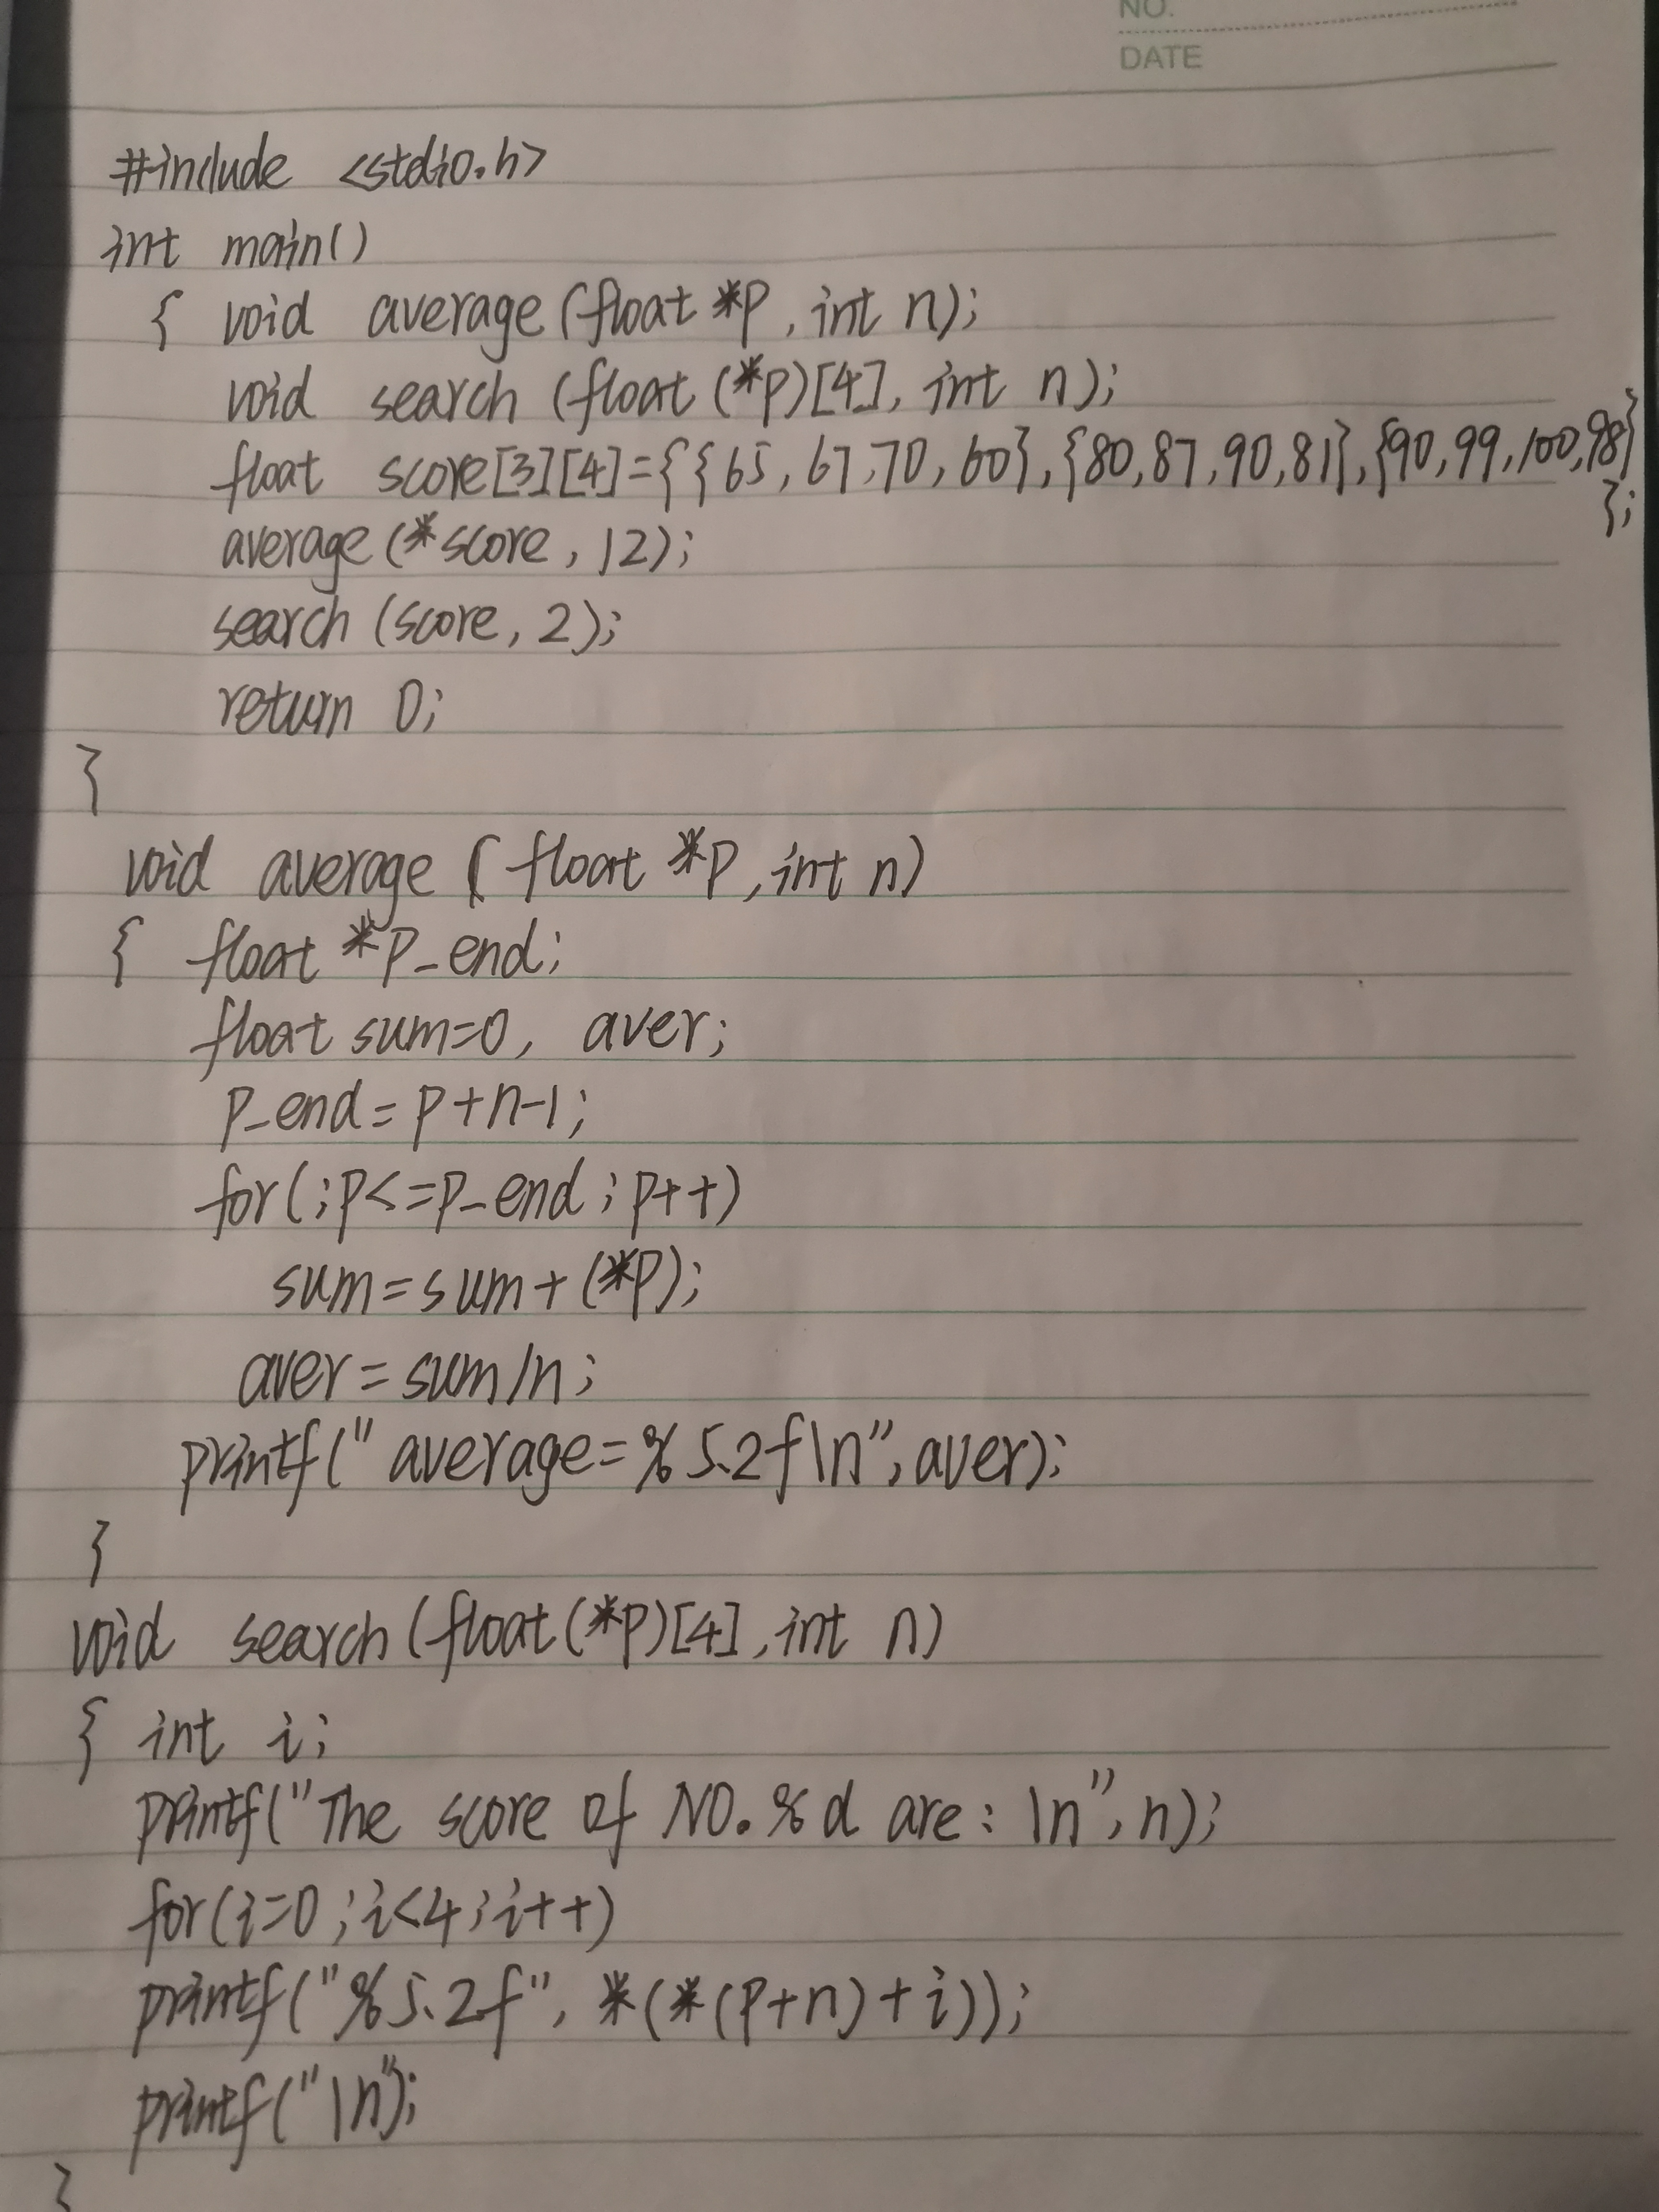 NO.
DATE
#include <stdio.h>
int main()
{ void average(float *p, int n);
void search (float (*p)[4], int n);
float score[3][4]={{65, 67, 70, 60}, {80, 87, 90, 81}, {90, 99, 100, 98}
};
average (*score, 12);
search (score, 2);
return 0;
}
void average ( float *p, int n)
{ float *p_end;
float sum=0, aver;
p_end = p+n-1;
for(;p<=p_end;p++)
sum=sum+(*p);
aver = sum/n;
printf(" average=%5.2f\n", aver);
}
void search (float(*p)[4], int n)
{ int i;
printf("The score of NO.%d are: \n", n);
for(i=0;i<4;i++)
printf("%5.2f", *(*(p+n)+i));
printf("\n");
}